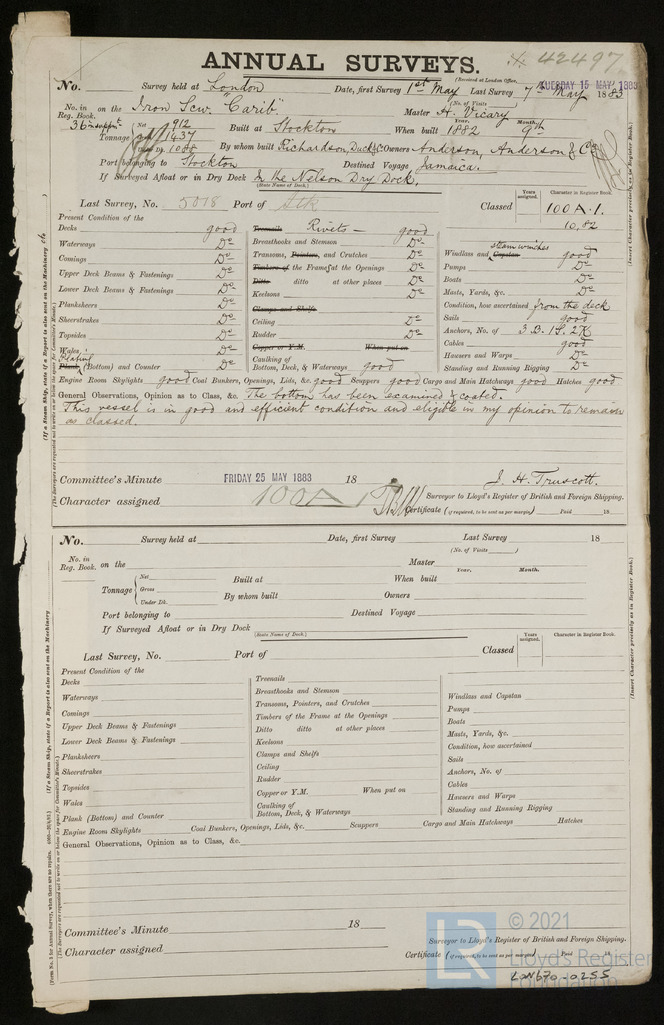 ANNUAL SURVEYS.
42497
(Received at London Office,
TUESDAY 15 MAY 1883
No. Survey held at London Date, first Survey 1st May Last Survey 7th May 1883
(No. of Visits )
No. in Reg. Book. on the Iron Scw. "Carib" Master H. Vicary
36 suppt. Tonnage Net 912 Built at Stockton When built Year. 1882 Month. 9th
Gross 1437
Under Dk. 1088 By whom built Richardson, Duck & Co Owners Anderson, Anderson & Co
Port belonging to Stockton Destined Voyage Jamaica.
If Surveyed Afloat or in Dry Dock In the Nelson Dry Dock.
(State Name of Dock.)
Last Survey, No. 5018 Port of Stk Classed Years assigned. Character in Register Book.
100 A.1.
10,82
Present Condition of the
Decks good
Waterways Do
Comings Do
Upper Deck Beams & Fastenings Do
Lower Deck Beams & Fastenings Do
Planksheers Do
Sheerstrakes Do
Topsides Do
Wales Do
Plating
Plank (Bottom) and Counter Do
Treenails Rivets — good
Breasthooks and Stemson Do
Transoms, Pointers, and Crutches Do
Timbers of the Frames at the Openings Do
Ditto ditto at other places Do
Keelsons Do
Clamps and Shelfs
Ceiling Do
Rudder Do
Copper or Y.M. When put on
Caulking of Bottom, Deck, & Waterways good
steam winches
Windlass and Capstan good
Pumps Do
Boats Do
Masts, Yards, &c. Do
Condition, how ascertained from the deck
Sails good
Anchors, No. of 3 B. 1 S. 2 K
Cables good
Hawsers and Warps Do
Standing and Running Rigging Do
Engine Room Skylights good Coal Bunkers, Openings, Lids, &c. good Scuppers good Cargo and Main Hatchways good Hatches good
General Observations, Opinion as to Class, &c. The bottom has been examined & coated.
This vessel is in good and efficient condition and eligible in my opinion to remain
as classed.
Committee's Minute FRIDAY 25 MAY 1883 18
J. H. Truscott.
Surveyor to Lloyd's Register of British and Foreign Shipping.
Character assigned 100A1
Certificate (if required, to be sent as per margin) Paid 18
(If a Steam Ship, state if a Report is also sent on the Machinery
(The Surveyors are requested not to write on or below the space for Committee's Minute.)
(Insert Character precisely as in Register Book.)
No. Survey held at Date, first Survey Last Survey 18
(No. of Visits )
No. in Reg. Book. on the Master
Tonnage Net Built at When built Year. Month.
Gross
Under Dk. By whom built Owners
Port belonging to Destined Voyage
If Surveyed Afloat or in Dry Dock
(State Name of Dock.)
Last Survey, No. Port of Classed Years assigned. Character in Register Book.
Present Condition of the
Decks
Waterways
Comings
Upper Deck Beams & Fastenings
Lower Deck Beams & Fastenings
Planksheers
Sheerstrakes
Topsides
Wales
Plank (Bottom) and Counter
Treenails
Breasthooks and Stemson
Transoms, Pointers, and Crutches
Timbers of the Frame at the Openings
Ditto ditto at other places
Keelsons
Clamps and Shelfs
Ceiling
Rudder
Copper or Y.M. When put on
Caulking of Bottom, Deck, & Waterways
Windlass and Capstan
Pumps
Boats
Masts, Yards, &c.
Condition, how ascertained
Sails
Anchors, No. of
Cables
Hawsers and Warps
Standing and Running Rigging
Engine Room Skylights Coal Bunkers, Openings, Lids, &c. Scuppers Cargo and Main Hatchways Hatches
General Observations, Opinion as to Class, &c.
Committee's Minute 18
Surveyor to Lloyd's Register of British and Foreign Shipping.
Character assigned
Certificate (if required, to be sent as per margin) Paid 18
(If a Steam Ship, state if a Report is also sent on the Machinery
(The Surveyors are requested not to write on or below the space for Committee's Minute.)
(Insert Character precisely as in Register Book.)
LR © 2021
Lloyd's Register
Foundation
LON670-0255